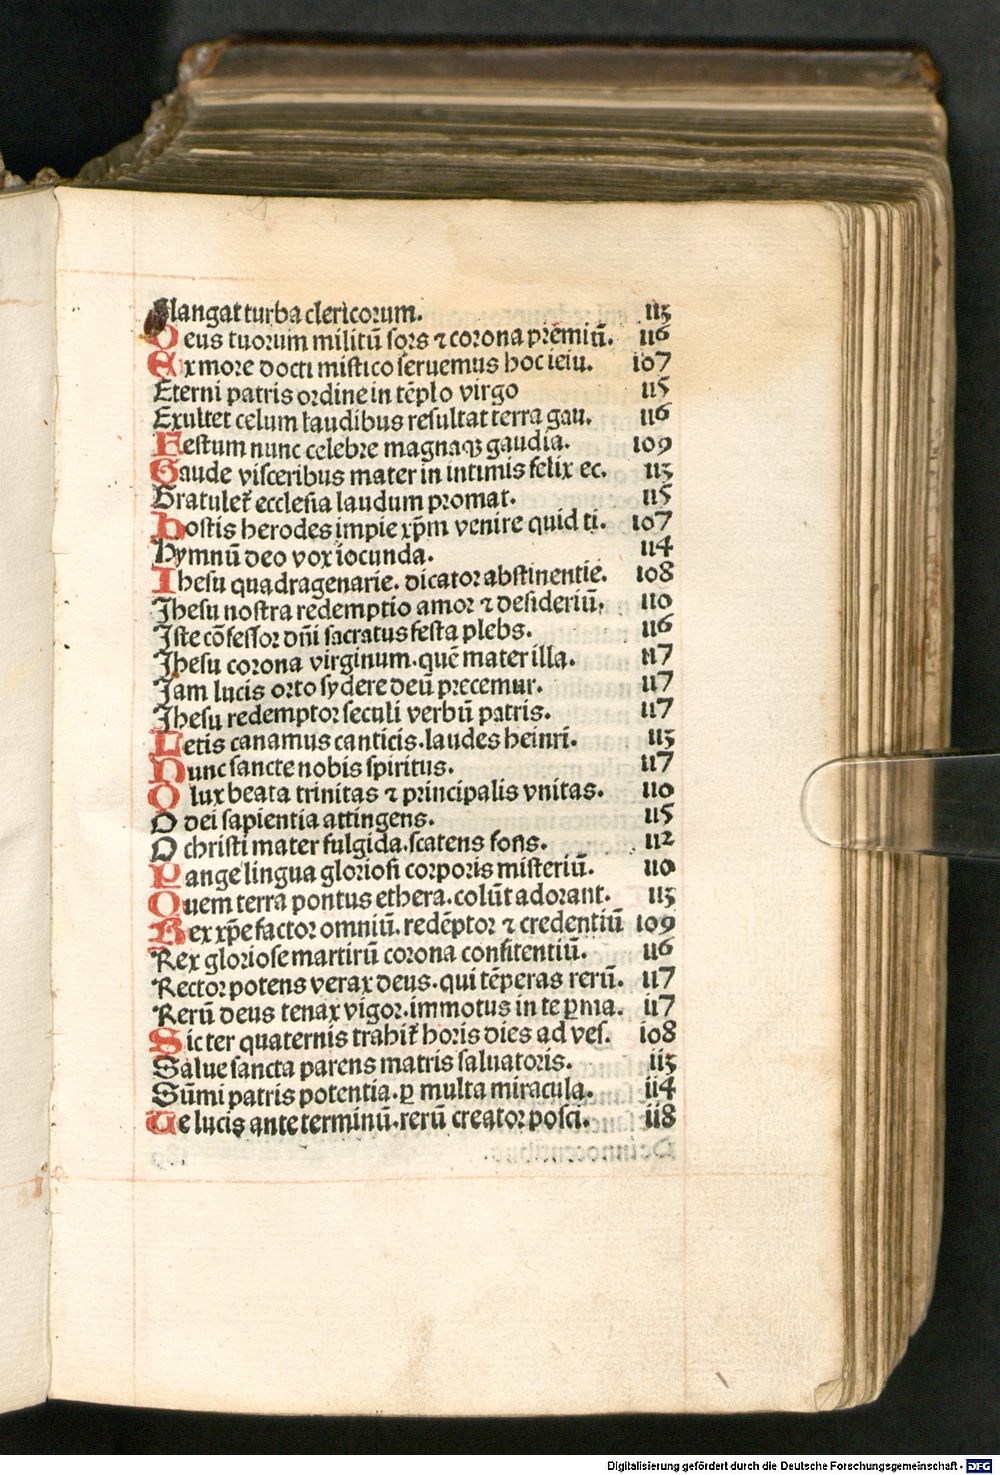 Clangat turba clericorum. 113
Deus tuorum militū sors ⁊ corona premiū. 116
Ex more docti mistico seruemus hoc ieiu. 107
Eterni patris ordine in tēplo virgo 115
Exultet celum laudibus resultat terra gau. 116
Festum nunc celebre magnaqꝫ gaudia. 109
Gaude visceribus mater in intimis felix ec. 113
Gratulet᷑ ecclesia laudum promat. 115
Hostis herodes impie xp̄m venire quid ti. 107
Hymnū deo vox iocunda. 114
Ihesu quadragenarie. dicator abstinentie. 108
Ihesu nostra redemptio amor ⁊ desideriū. 110
Iste cōfessor dn̄i sacratus festa plebs. 116
Ihesu corona virginum. quē mater illa. 117
Iam lucis orto sydere deū precemur. 117
Ihesu redemptor seculi verbū patris. 117
Letis canamus canticis. laudes heinri. 113
Nunc sancte nobis spiritus. 117
O lux beata trinitas ⁊ principalis vnitas. 110
O dei sapientia attingens. 115
O christi mater fulgida. scatens fons. 112
Pange lingua gloriosi corporis misteriū. 110
Quem terra pontus ethera. colūt adorant. 113
Rex xp̄e factor omniū. redēptor ⁊ credentiū 109
Rex gloriose martirū corona confitentiū. 116
Rector potens verax deus. qui tēperas rerū. 117
Rerū deus tenax vigor. immotus in te ꝑma. 117
Sic ter quaternis trahit᷑ horis dies ad ves. 108
Salue sancta parens matris saluatoris. 113
Sūmi patris potentia. ꝑ multa miracula. 114
Te lucis ante terminū. rerū creator posci. 118
Digitalisierung gefördert durch die Deutsche Forschungsgemeinschaft - DFG